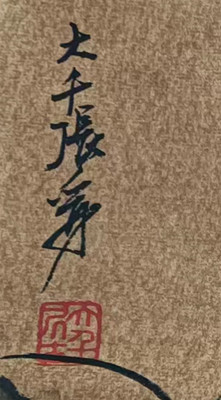 大千張爰